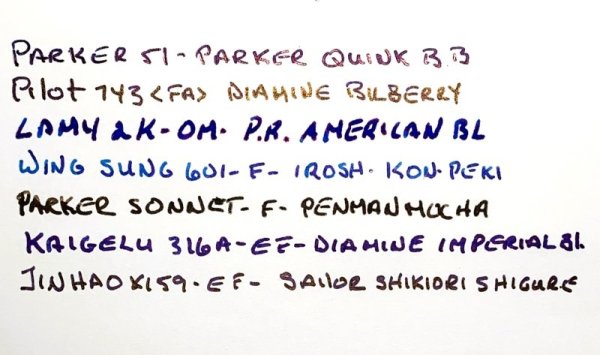 PARKER 51 - PARKER QUINK B.B
Pilot 743 <FA> DIAMINE BILBERRY
LAMY 2K - OM - P.R. AMERICAN BL
WING SUNG 601 - F - IROSH. KON-PEKI
PARKER SONNET - F - PENMAN MOCHA
KAIGELU 316A - EF - DIAMINE IMPERIAL Bl.
JINHAO X159 - EF - SAILOR SHIKIORI SHIGURE